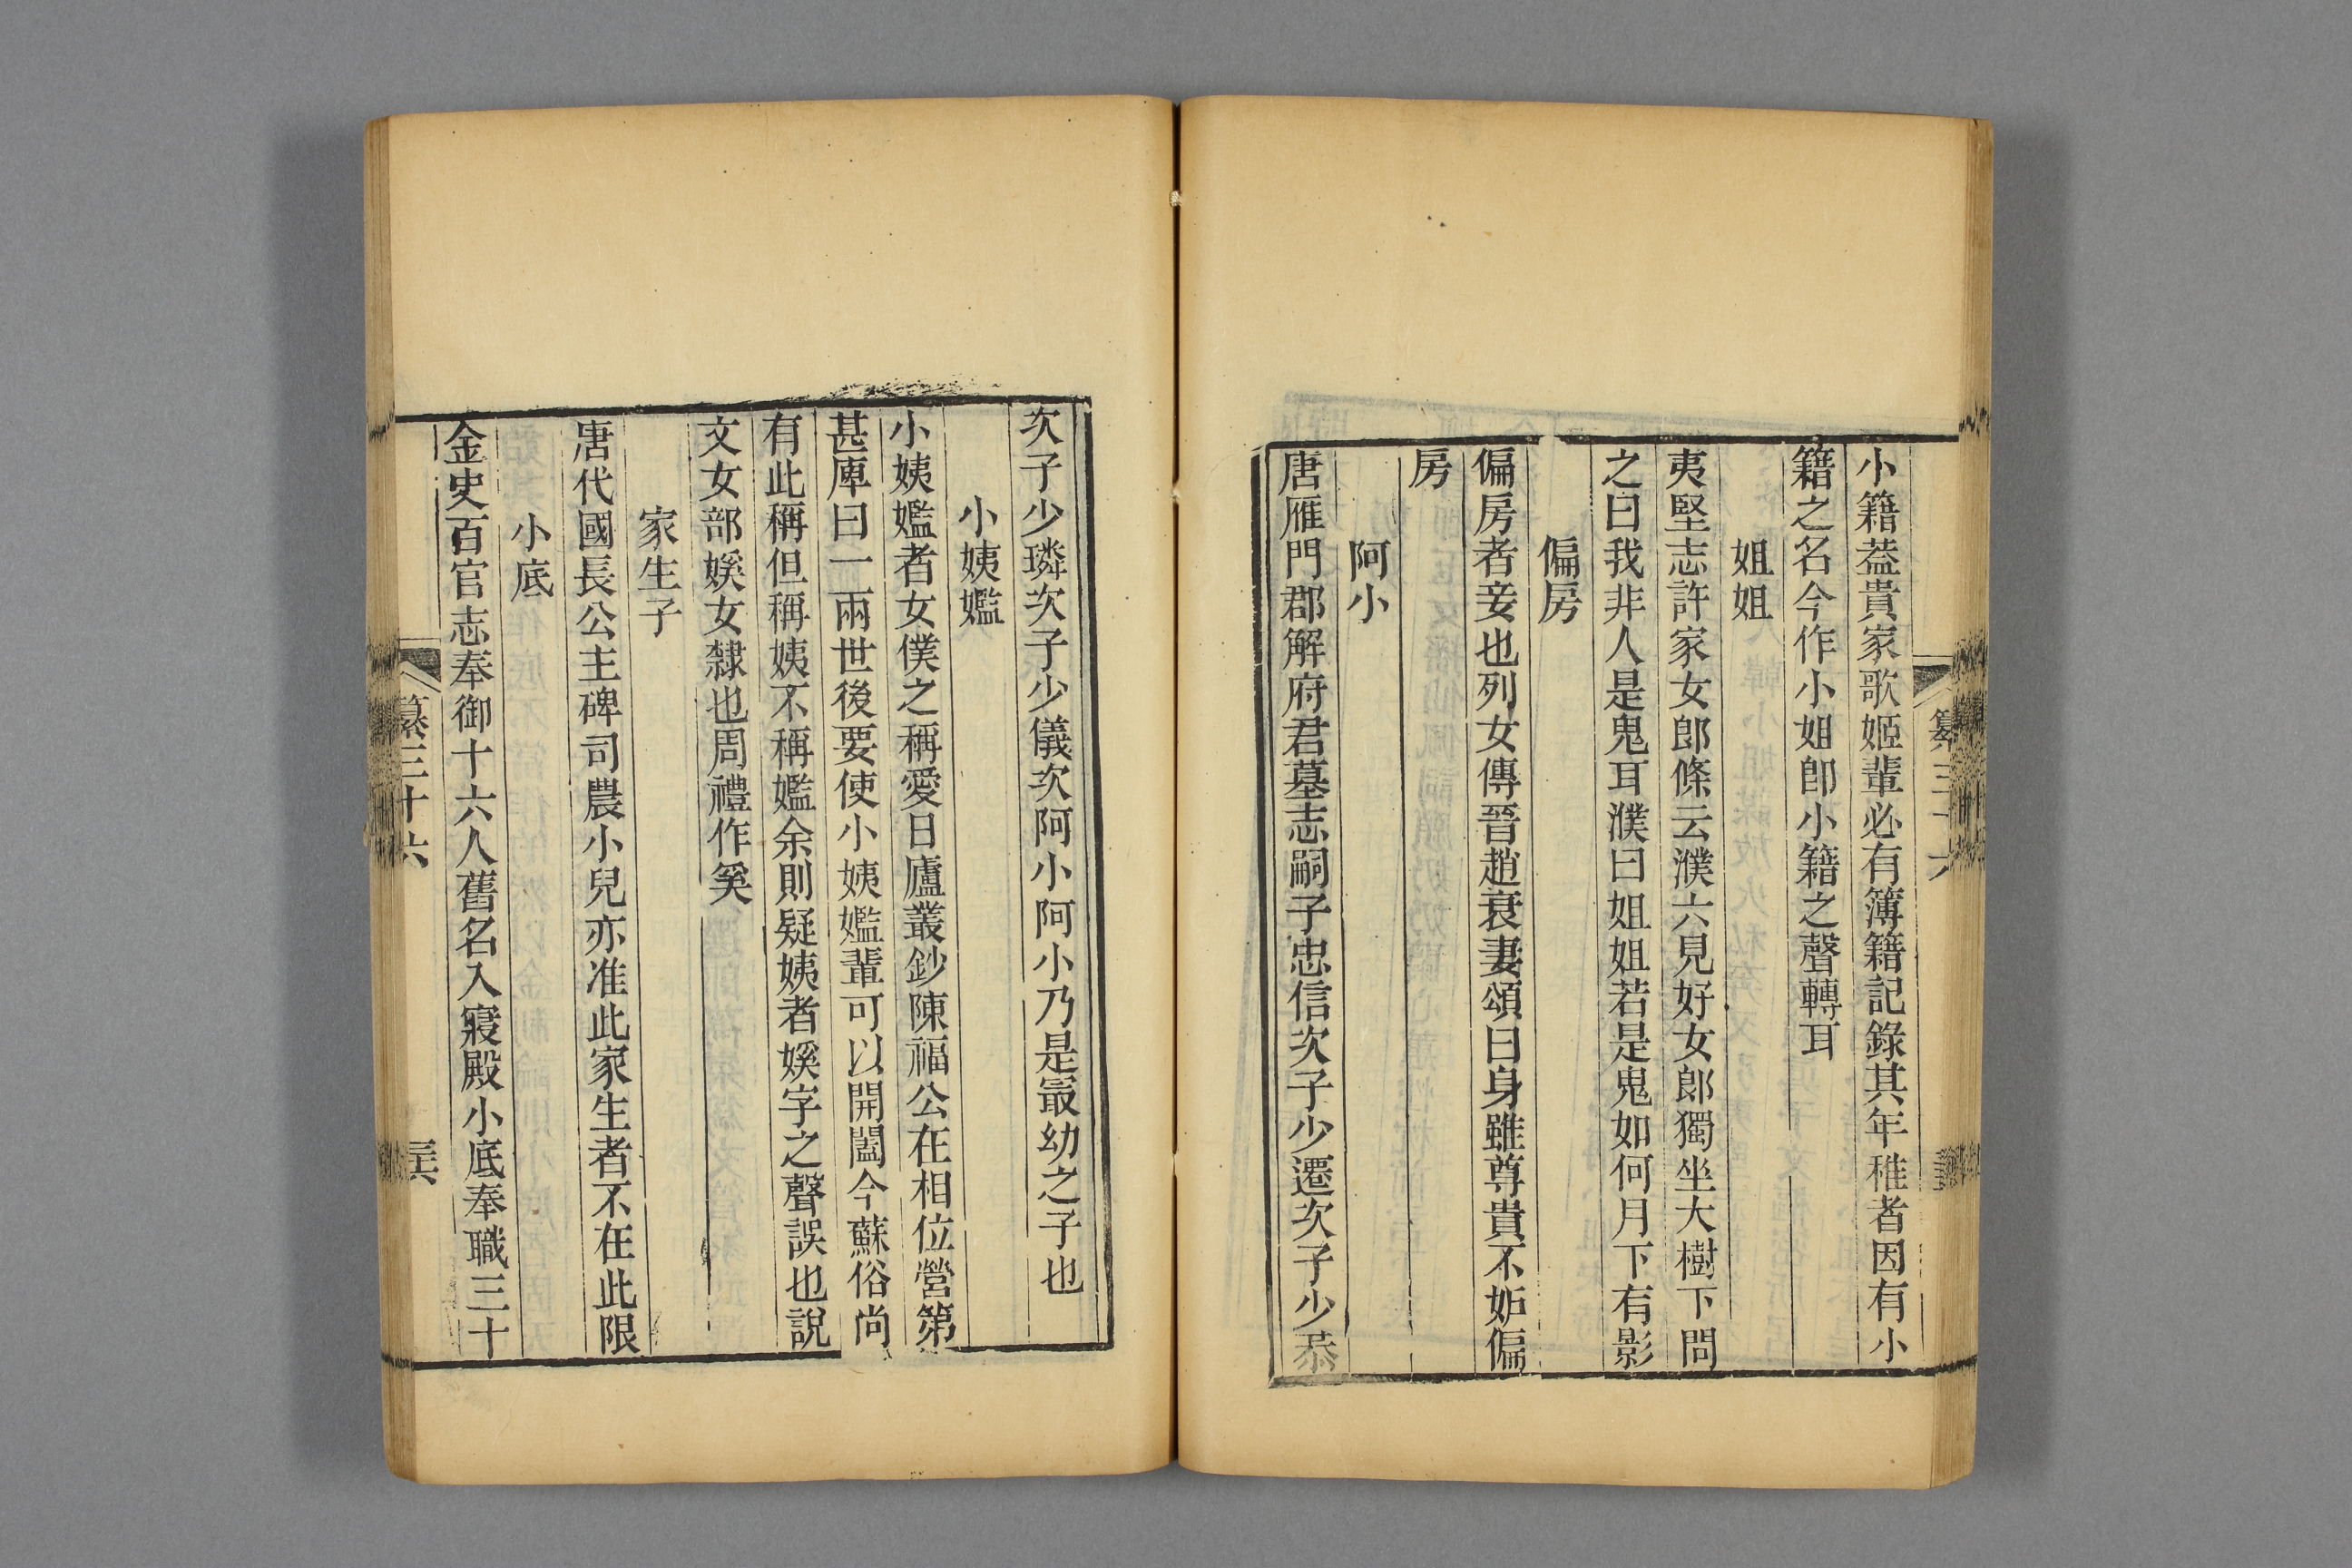 小籍葢貴家歌姬輩必有簿籍記錄其年稚者因有小
籍之名今作小姐卽小籍之聲轉耳
姐姐
夷堅志許家女郎條云濮六見好女郎獨坐大樹下問
之曰我非人是鬼耳濮曰姐姐若是鬼如何月下有影
偏房
偏房者妾也列女傳晉趙衰妻頌曰身雖尊貴不妬偏
房
阿小
唐雁門郡解府君墓志嗣子忠信次子少遷次子少恭
次子少璘次子少儀次阿小阿小乃是㝡幼之子也
小姨㜮
小姨㜮者女僕之稱愛日廬叢鈔陳福公在相位營第
甚庳曰一兩世後要使小姨㜮輩可以開闔今蘇俗尚
有此稱但稱姨不稱㜮余則疑姨者媄字之聲誤也說
文女部媄女隸也周禮作奚
家生子
唐代國長公主碑司農小兒亦准此家生者不在此限
小底
金史百官志奉御十六人舊名入寢殿小底奉職三十
纂三十六